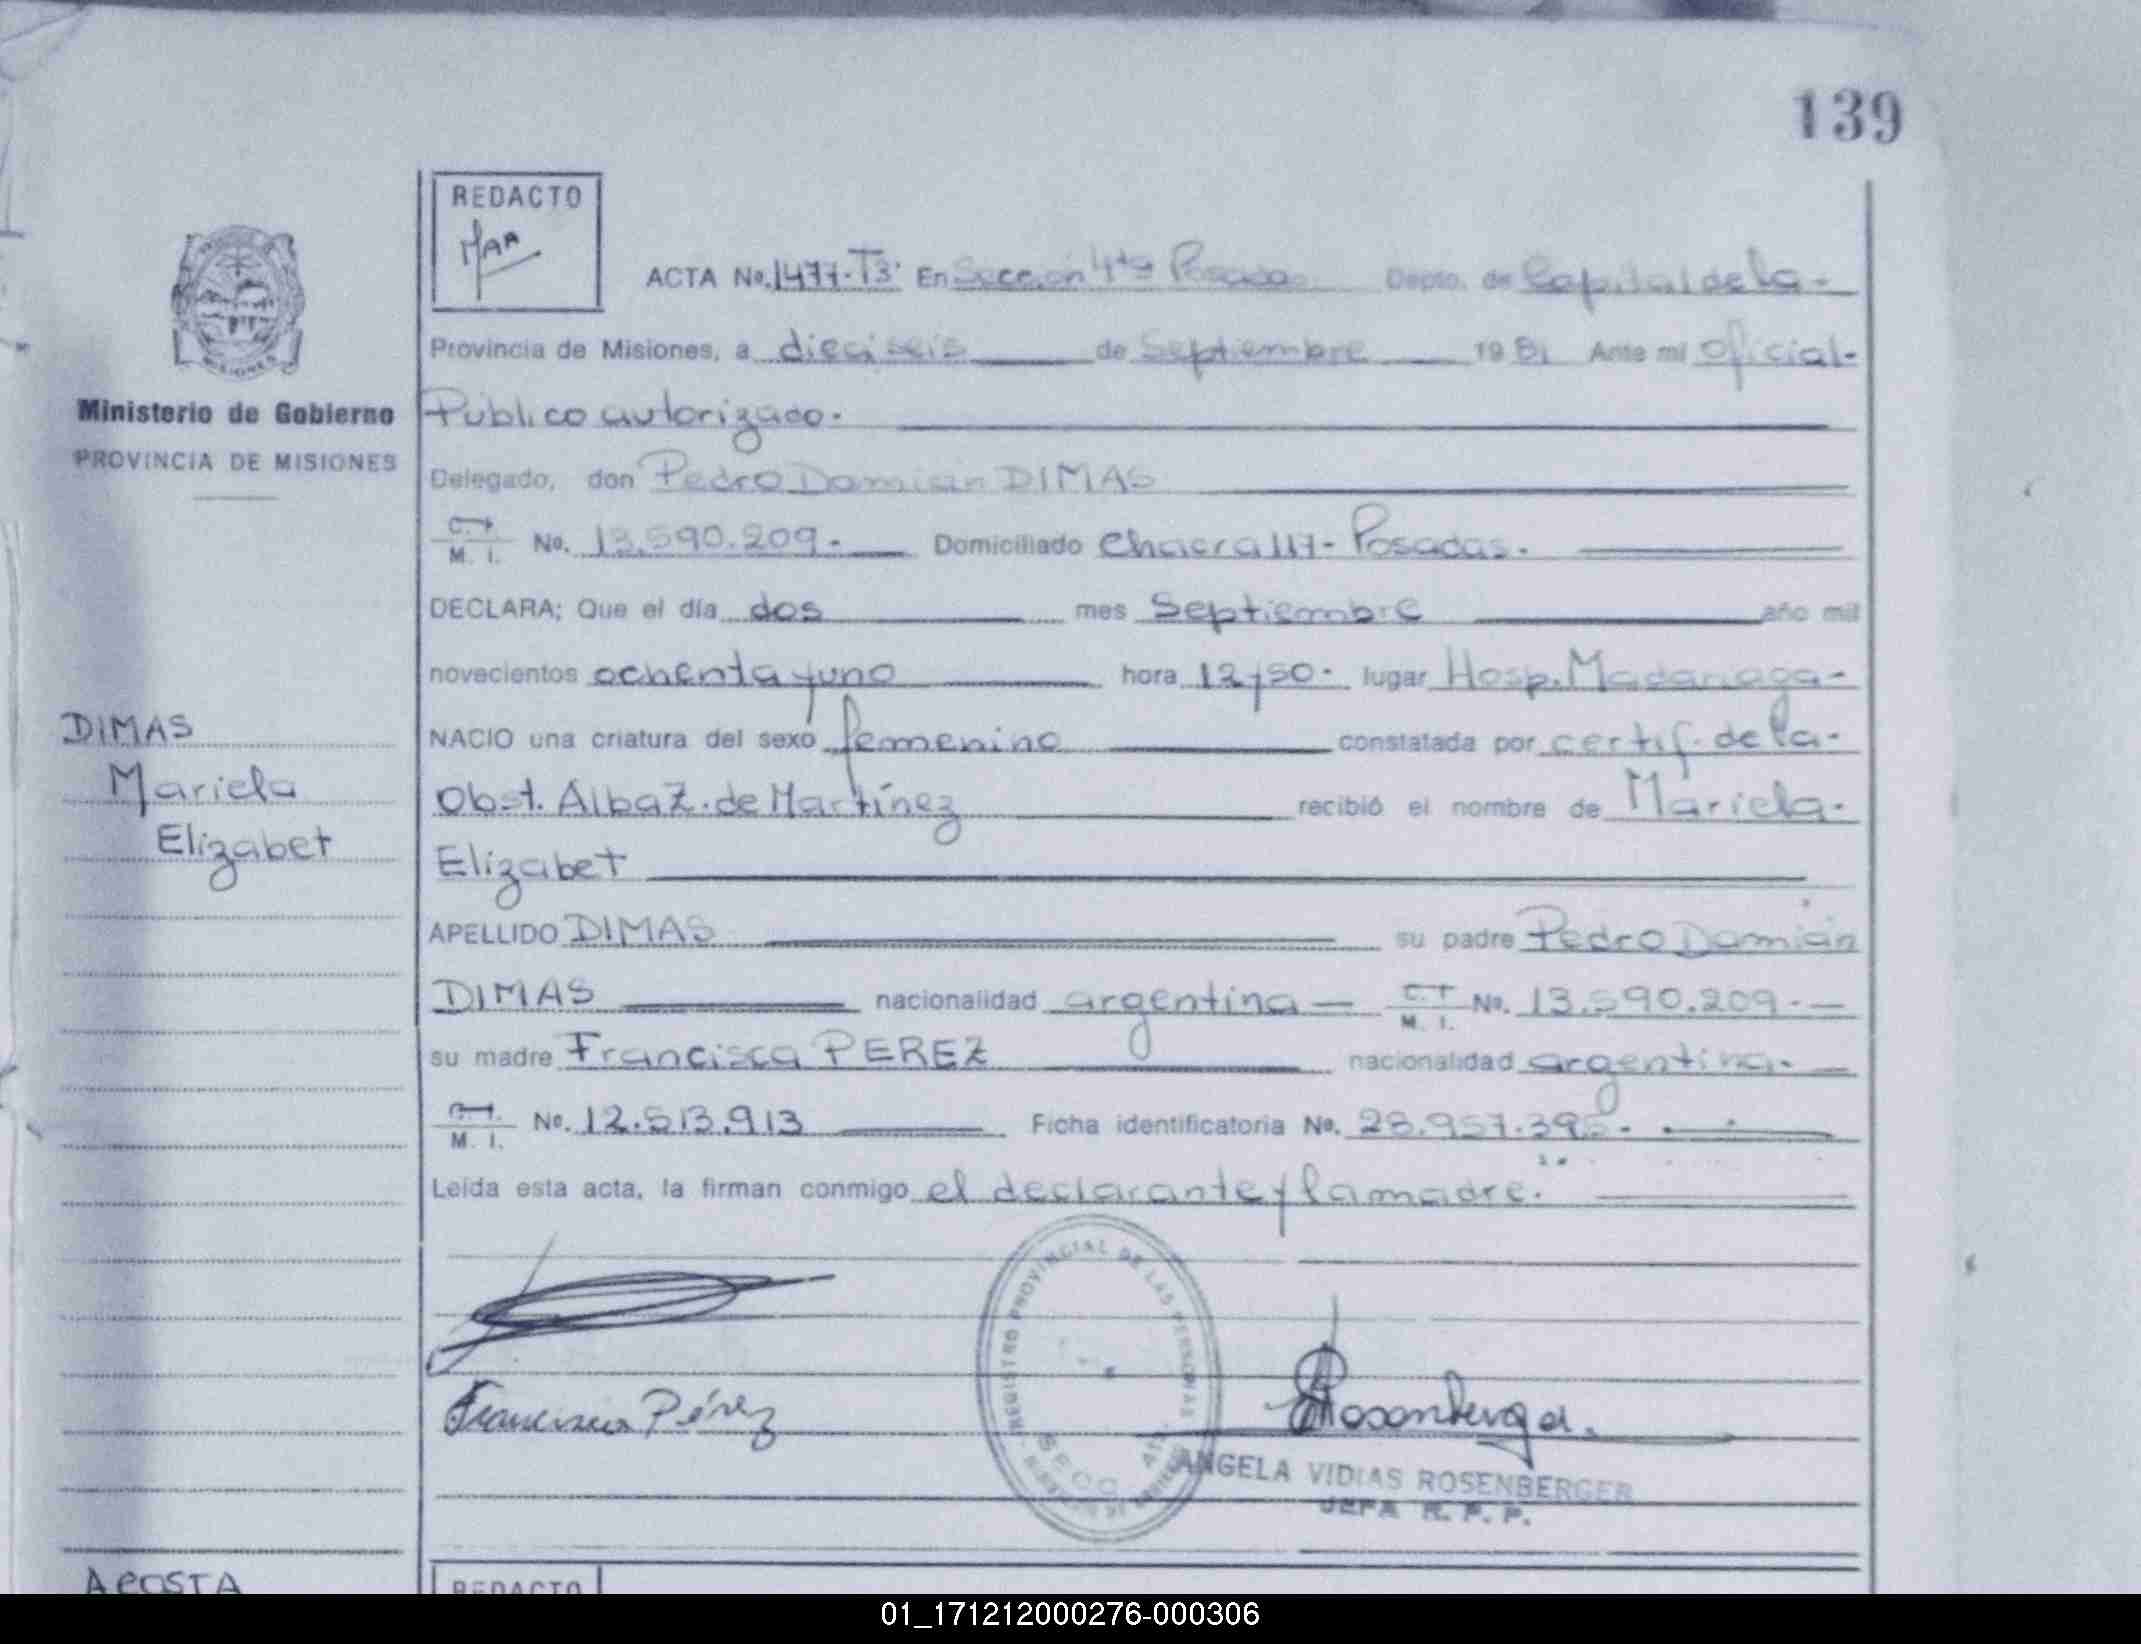 139
REDACTO
ACTA No. 1477-T3. En Sección 4ta Posadas Depto. de Capital de la-
Provincia de Misiones, a dieciseis de Septiembre 1981 Ante mi Oficial-
Ministerio de Gobierno
Público autorizado.
PROVINCIA DE MISIONES
Delegado, don Pedro Damián DIMAS
M. I. No. 13.590.209.- Domiciliado Chacra 117- Posadas.
DECLARA; Que el día dos mes Septiembre año mil
novecientos ochenta y uno hora 12,50. lugar Hosp. Madariaga-
DIMAS
NACIO una criatura del sexo femenino constatada por certif. de la-
Mariela
Obst. Alba Z. de Martínez recibió el nombre de Mariela-
Elizabet
Elizabet
APELLIDO DIMAS su padre Pedro Damián
DIMAS nacionalidad argentina — M. I. No. 13.590.209.-
su madre Francisca PEREZ nacionalidad argentina.-
M. I. No. 12.513.913 Ficha identificatoria No. 28.957.395.
Leída esta acta, la firman conmigo el declarante y la madre.
REGISTRO PROVINCIAL DE LAS PERSONAS
SECC. 4ta
Francisca Pérez
Rosenberger
ANGELA VIDIAS ROSENBERGER
JEFA R. P. P.
ACOSTA
REDACTO
01_171212000276-000306